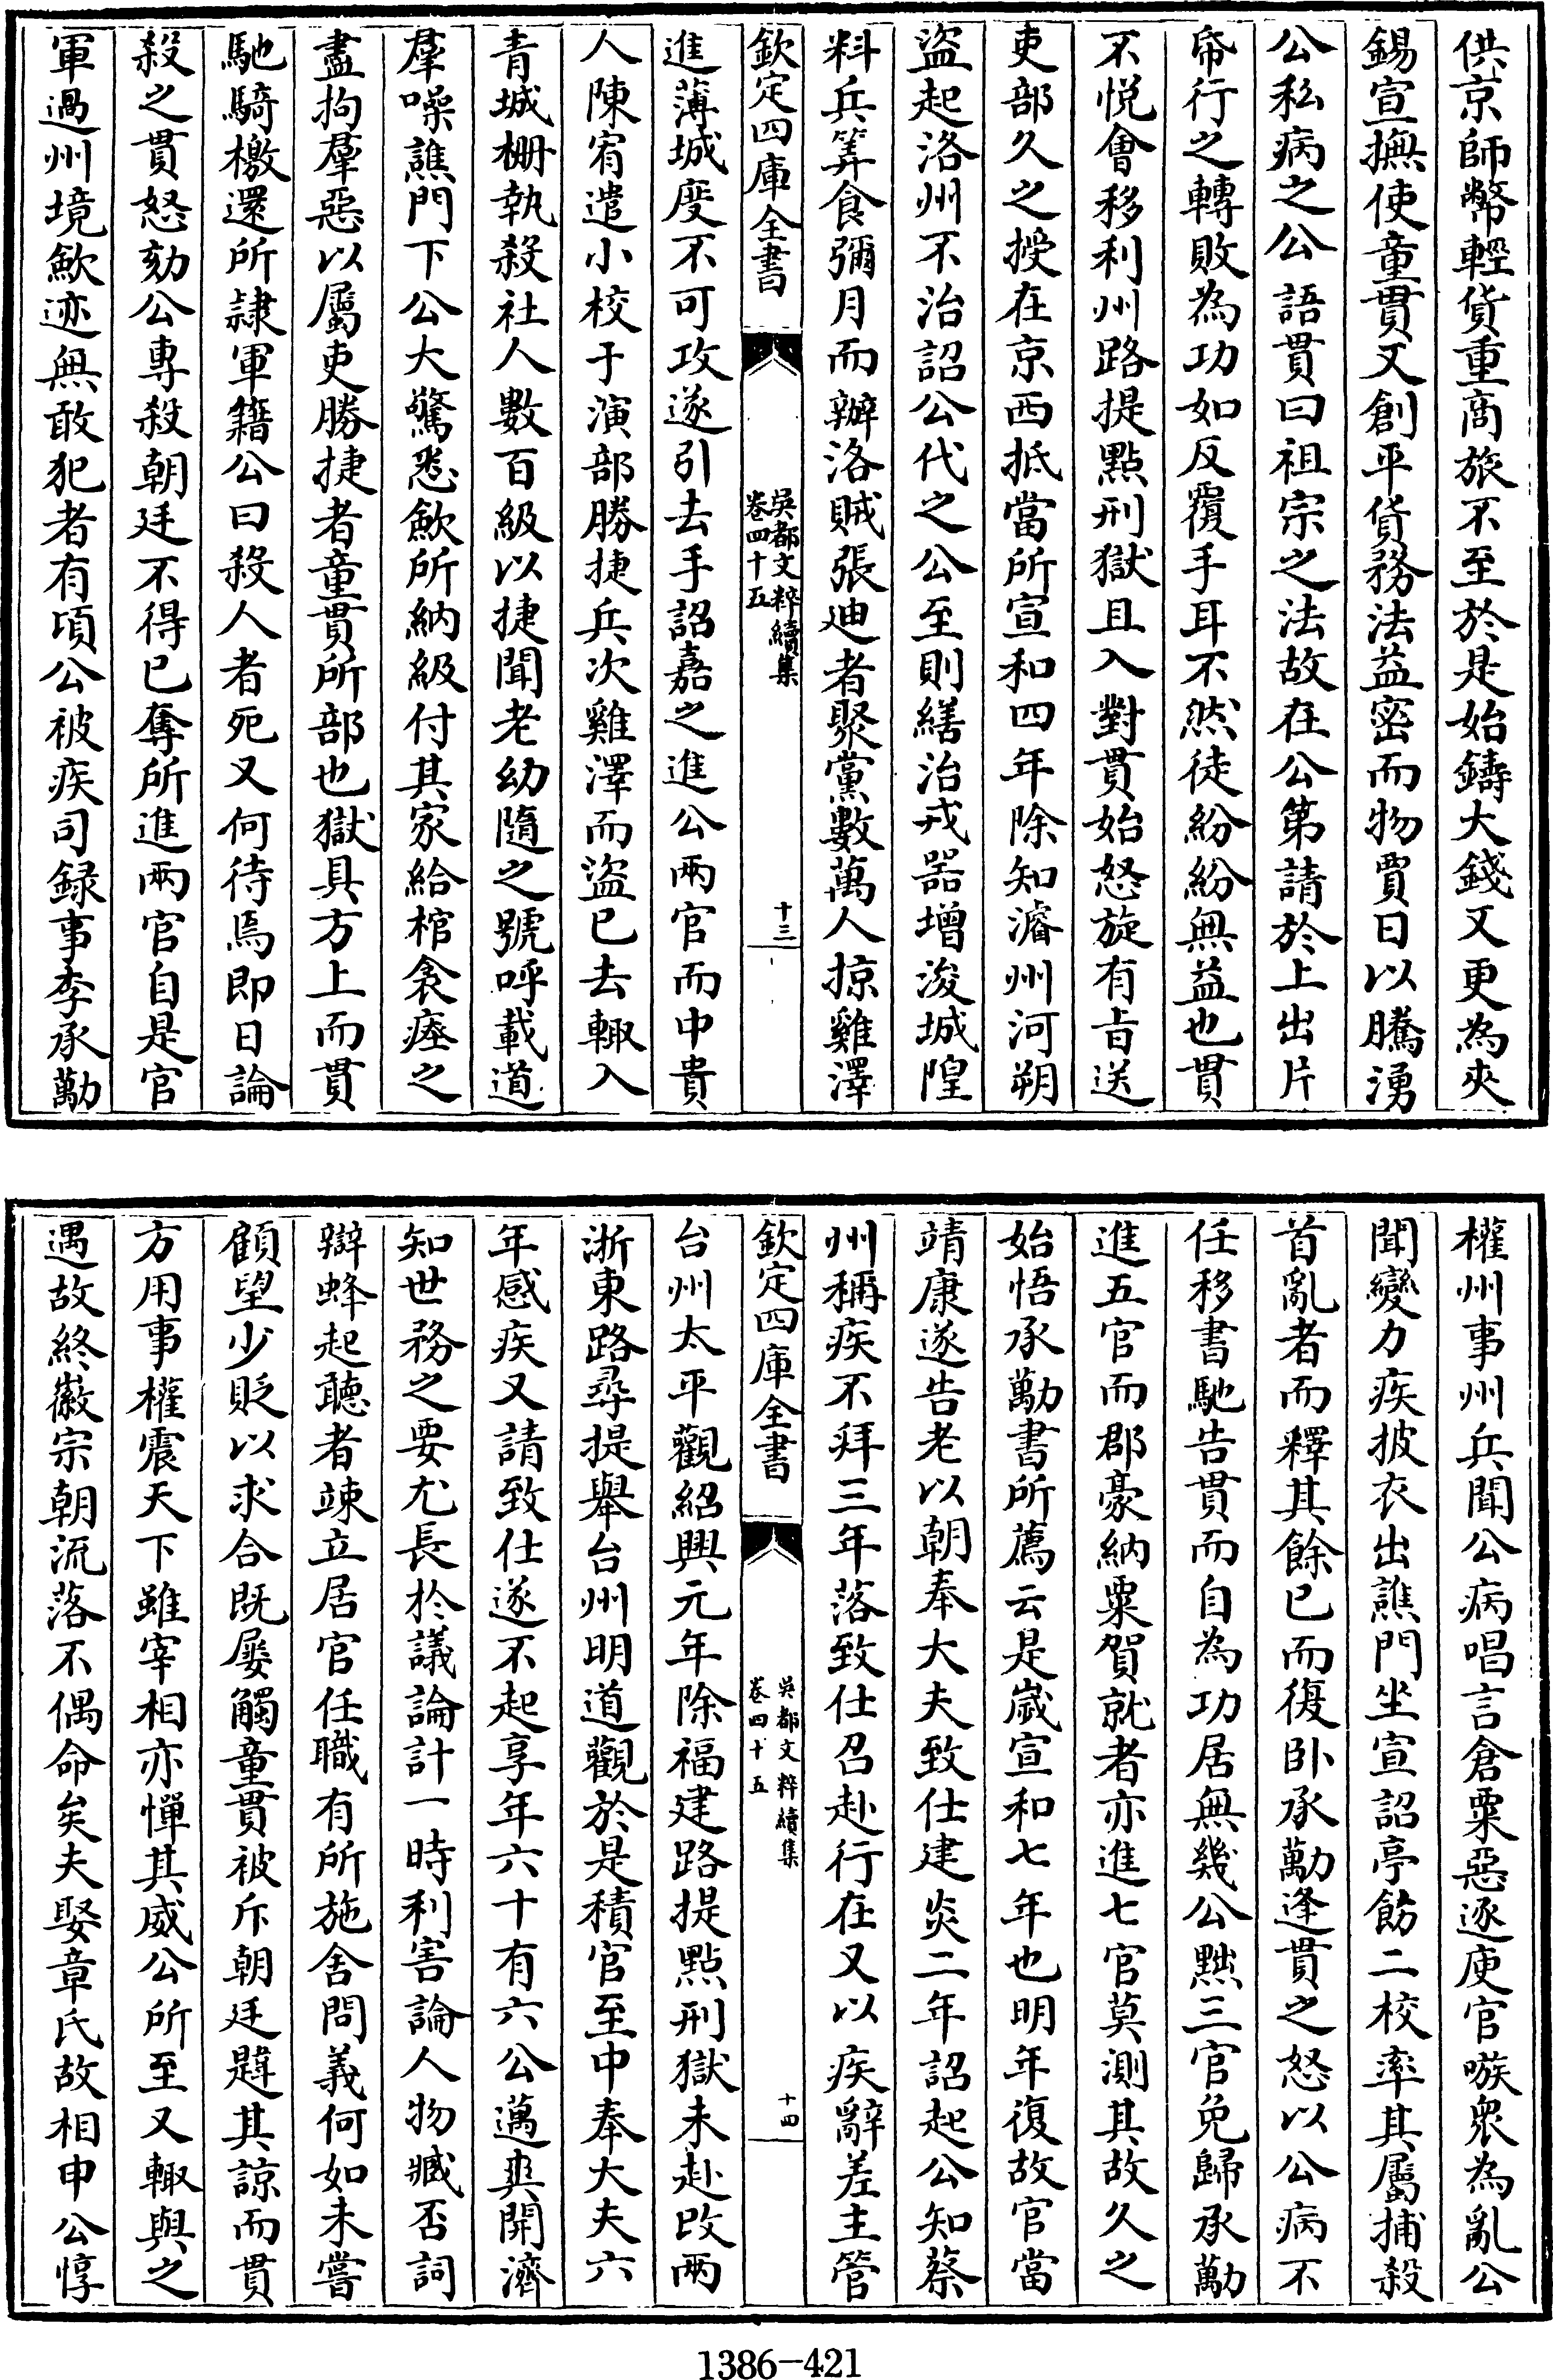 供京師幣輕貨重商旅不至於是始鑄大錢又更為夾
錫宣撫使童貫又創平貨務法益密而物賈日以騰湧
公私病之公語貫曰祖宗之法故在公第請於上出片
帋行之轉敗為功如反覆手耳不然徒紛紛無益也貫
不悅會移利州路提點刑獄且入對貫始怒旋有旨送
吏部久之授在京西抵當所宣和四年除知濬州河朔
盜起洺州不治詔公代之公至則繕治戎器增浚城隍
料兵筭食彌月而辦洺賊張迪者聚黨數萬人掠雞澤
欽定四庫全書
吳都文粹續集
卷四十五
十三
進薄城度不可攻遂引去手詔嘉之進公兩官而中貴
人陳宥遣小校于演部勝捷兵次雞澤而盜已去輙入
青城柵執殺社人數百級以捷聞老幼隨之號呼載道
羣噪譙門下公大驚悉歛所納級付其家給棺衾瘞之
盡拘羣惡以屬吏勝捷者童貫所部也獄具方上而貫
馳騎檄還所隷軍籍公曰殺人者死又何待焉即日論
殺之貫怒劾公專殺朝廷不得已奪所進兩官自是官
軍過州境歛迹無敢犯者有頃公被疾司録事李承勱
權州事州兵聞公病唱言倉粟惡逐庾官嗾衆為亂公
聞變力疾披衣出譙門坐宣詔亭飭二校率其屬捕殺
首亂者而釋其餘已而復卧承勱逢貫之怒以公病不
任移書馳告貫而自為功居無幾公黜三官免歸承勱
進五官而郡豪納粟賀就者亦進七官莫測其故久之
始悟承勱書所薦云是歲宣和七年也明年復故官當
靖康遂告老以朝奉大夫致仕建炎二年詔起公知蔡
州稱疾不拜三年落致仕召赴行在又以疾辭差主管
欽定四庫全書
吳都文粹續集
卷四十五
十四
台州太平觀紹興元年除福建路提點刑獄未赴改兩
浙東路尋提舉台州明道觀於是積官至中奉大夫六
年感疾又請致仕遂不起享年六十有六公邁爽開濟
知世務之要尤長於議論計一時利害論人物臧否詞
辯蜂起聽者竦立居官任職有所施舍問義何如未嘗
顧望少貶以求合既屢觸童貫被斥朝廷韙其諒而貫
方用事權震天下雖宰相亦憚其威公所至又輙與之
遇故終徽宗朝流落不偶命矣夫娶章氏故相申公惇
1386-421